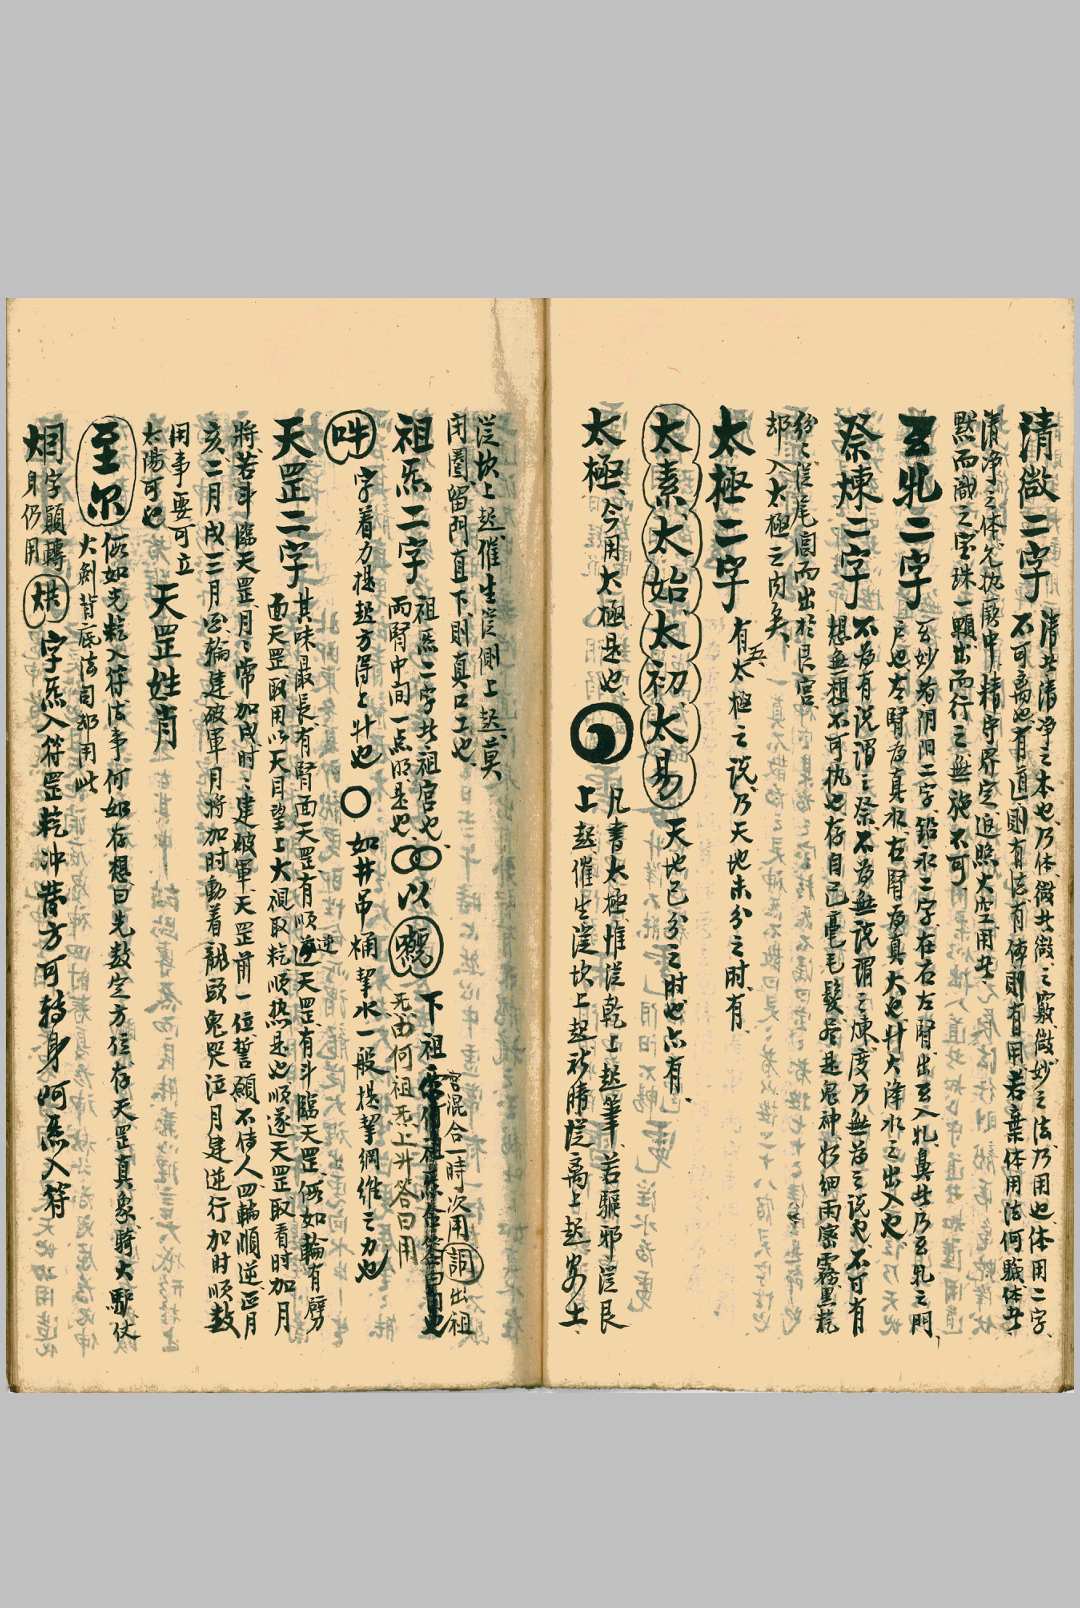 清微二字
清者清净之本也乃体微者微之竅微妙之法乃用也体用二字
不可離也有道則有法有体則有用若棄体用法何職体者
清净之体允执厥中精守界定返照太空用者
黙而識之宝珠一顆出而行之無施不可
玄牝二字
玄妙者阴阳二字鉛永二字在右左腎出玄入牝鼻者乃玄牝之門
户也左腎為真水右腎為真火也廾大泽水之出入也
祭煉二字
不為有説謂之祭不為無説謂之煉度乃無為之説也不可有
想無想不可执也存自己毫毛髮尽是鬼神妙細雨蒙霧黑乾
纷之從尾閭而出於艮宮
却入太極之内矣
太極二字
有五太極之説乃天地未分之时有
太素太始太初太易
天地已分之时也亦有
太極
今用太極是也
凡書太極惟從乾上起筆若驅邪從艮
上起催生從坎上起祈晴從离上起安土
從坎上起催生從側上起莫
闭圈留門直下則真口工也
祖炁二字
祖炁二字者祖宮也
两腎中间一点明是也
以
下祖
宮混合一時次用
出祖
无由何祖炁上升答曰用
吽
字着力提起方得上升也
如井吊桶挈水一般提挈綱維之力也
天罡二字
其味最長有腎面天罡有順逆天罡有斗臨天罡假如輪有劈
面天罡取用以天目望上大視取乾順热是也順遂天罡取看时加月
將若斗臨天罡月月常加戌时时建破軍天罡前一位誓願不传人四輪順逆正月
亥二月戌三月
輪建破軍月將加时動着龍頭鬼哭泣月建逆行加时順数
用事要可立
太陽可也
天罡姓肖
至尔
假如先乾入符法事何如存想曰先数定方位存天罡真象騎大馿仗
火劍背底法司都用此
烟
字顛轉
身仍用
字炁入符罡乾冲背方可转身呵炁入符